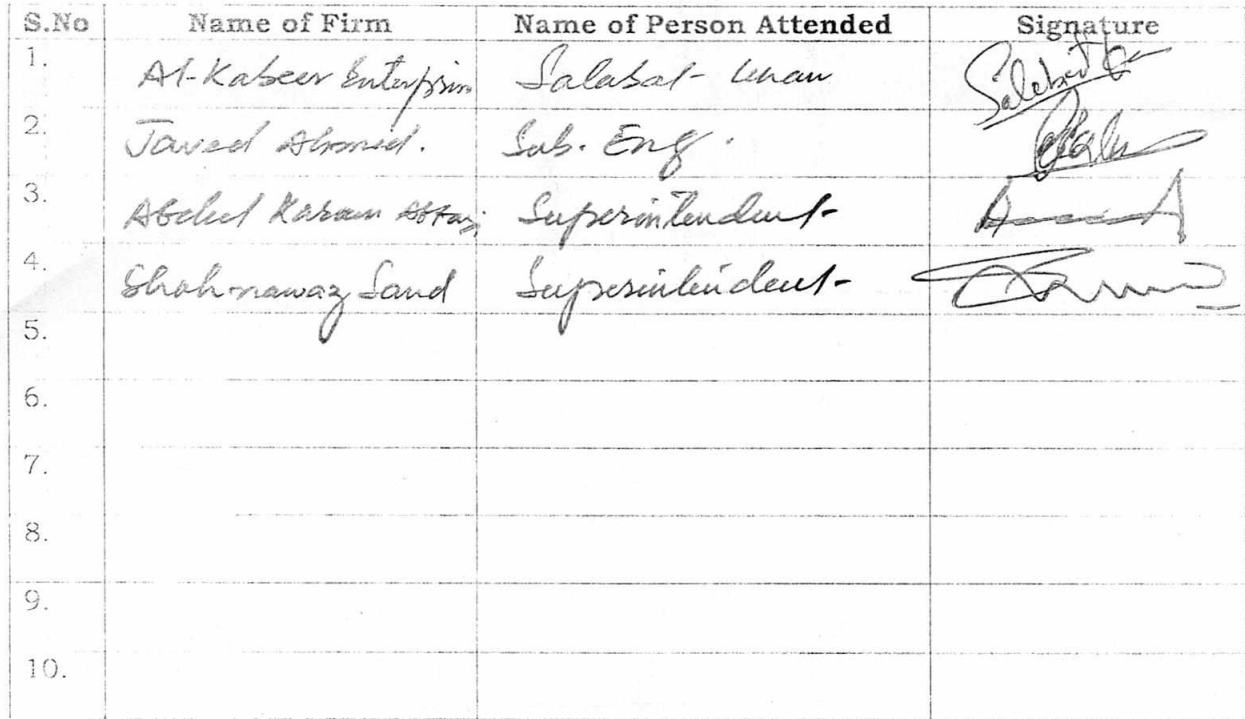 S.No Name of Firm Name of Person Attended Signature
1. Al-Kabeer Enterprises Salabat Khan
2. Javed Ahmed. Sub. Eng.
3. Abdul Karam Superintendent
4. Shahnawaz Sand Superintendent
5.
6.
7.
8.
9.
10.